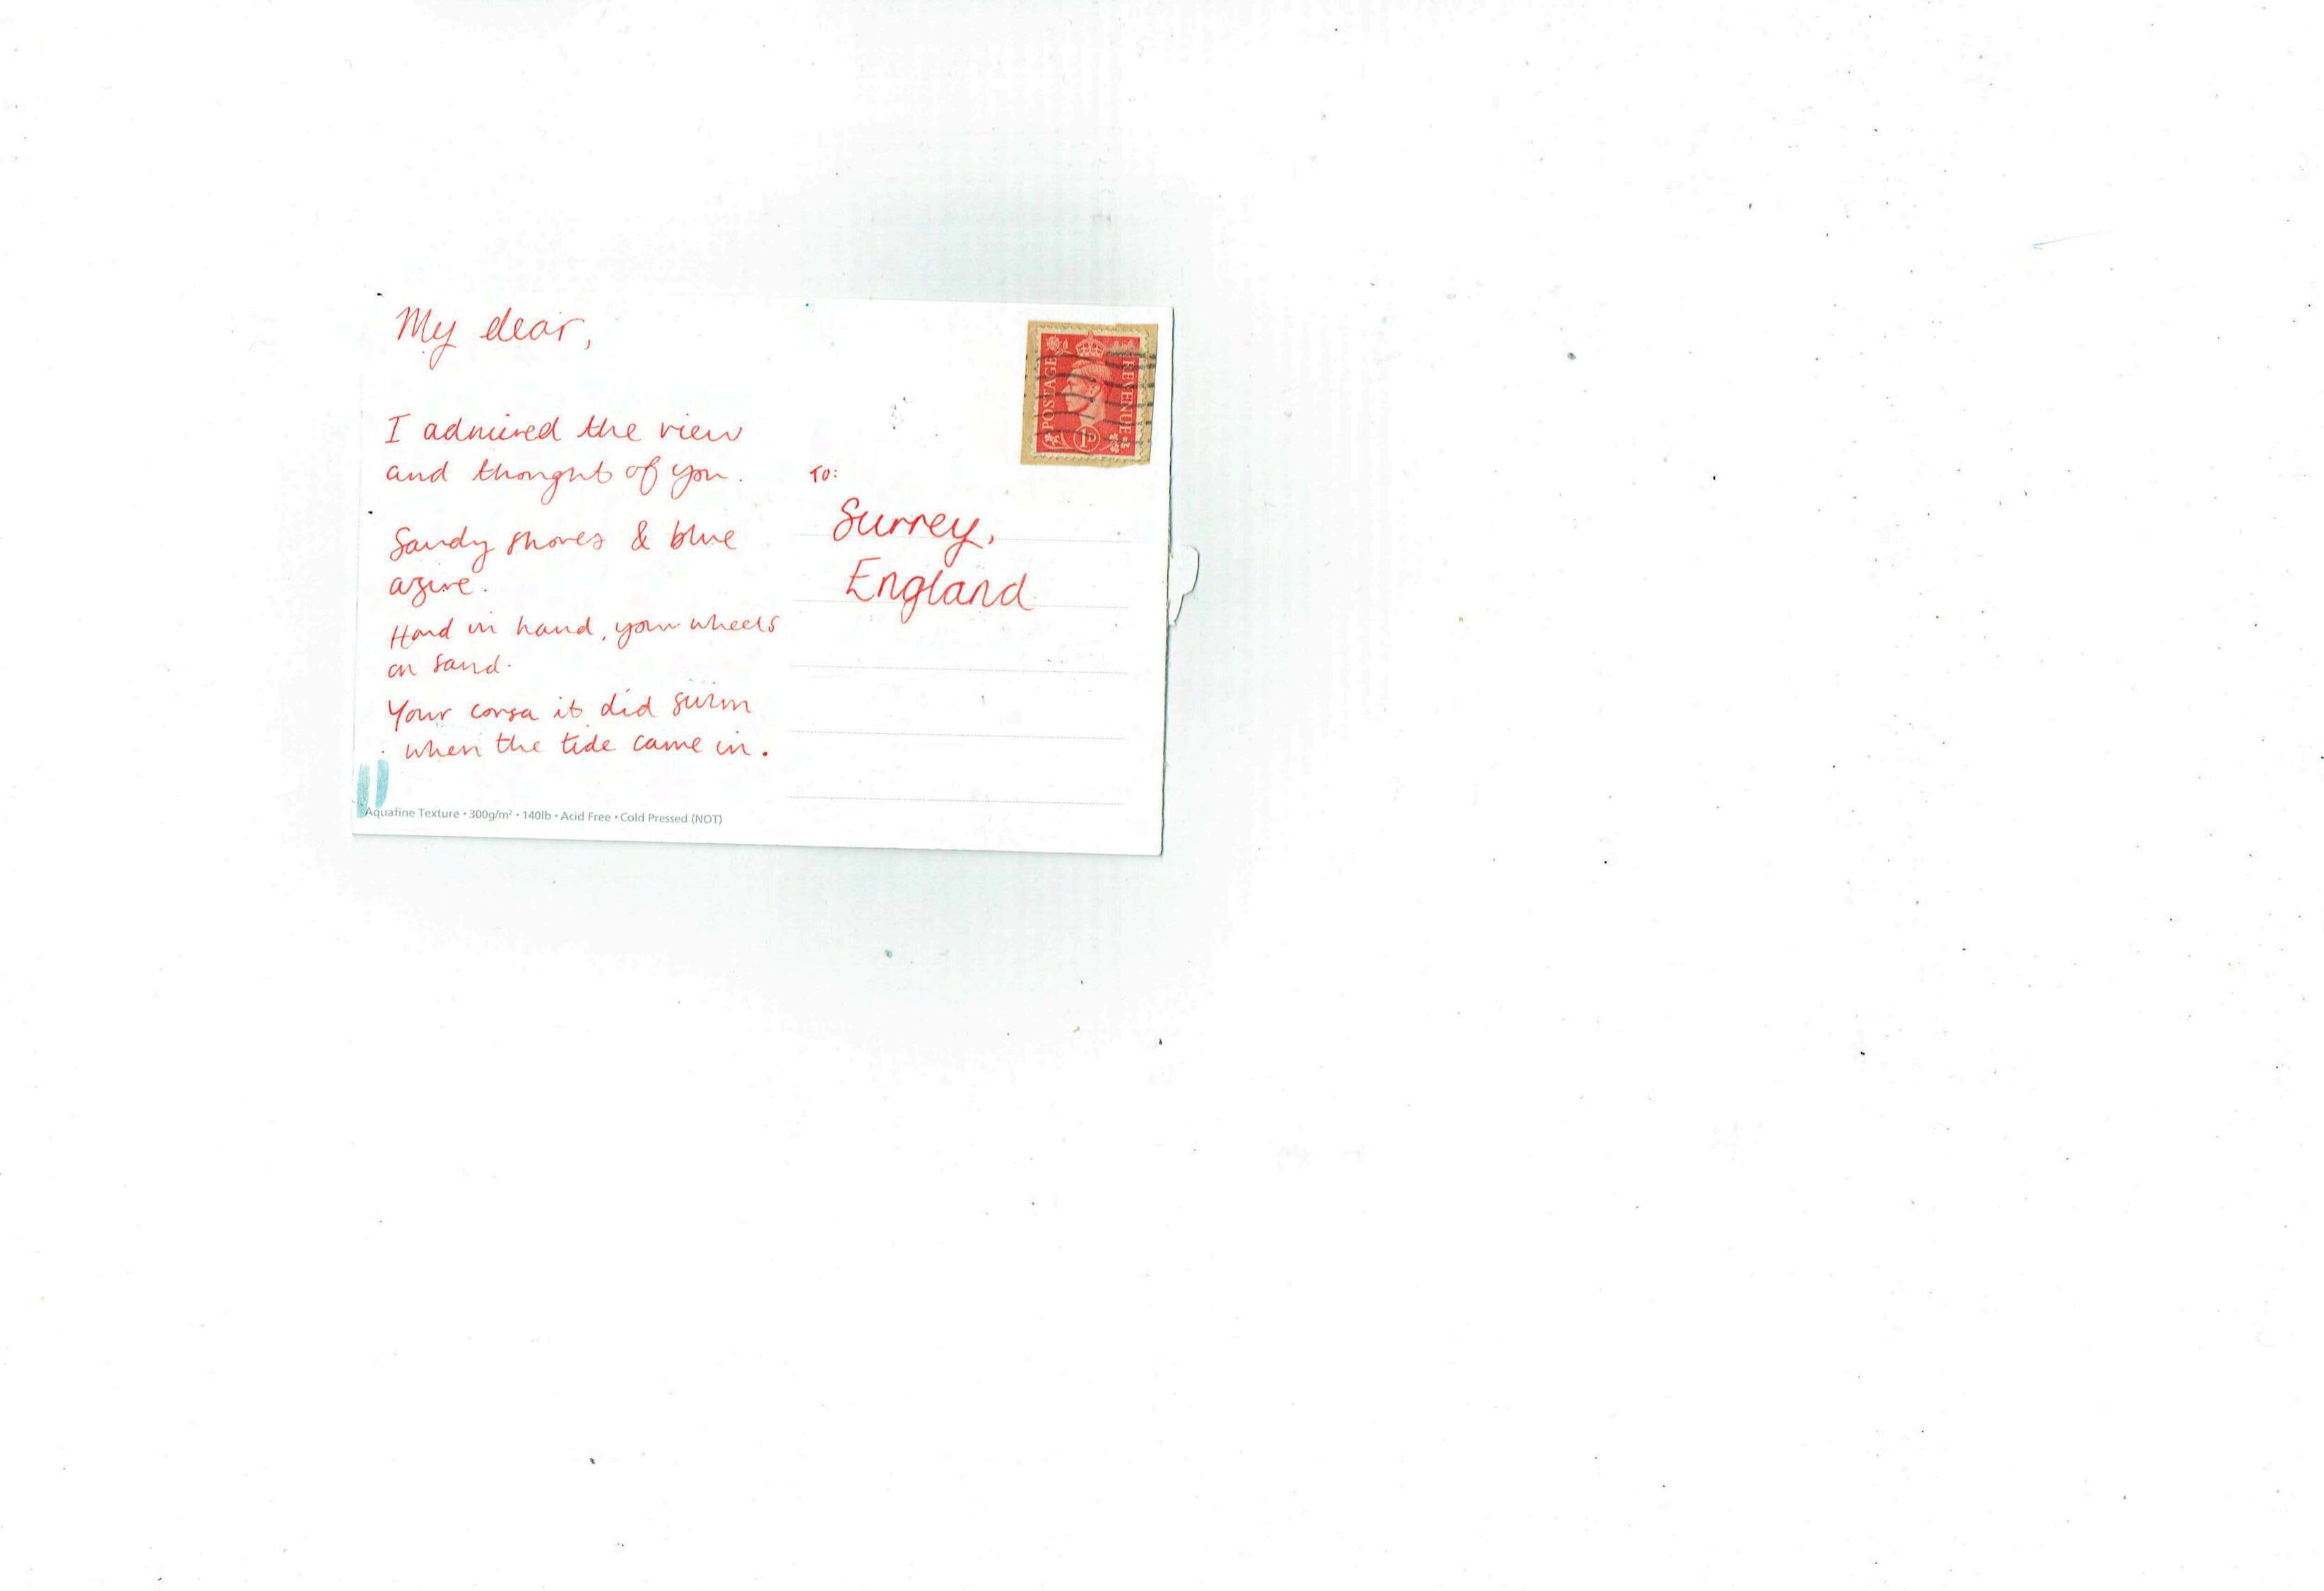 My dear,
I admired the view
and thought of you.
Sandy shores & blue
azure.
Hand in hand, your wheels
on sand.
Your corsa it did swim
when the tide came in.
Aquafine Texture • 300g/m² • 140lb • Acid Free • Cold Pressed (NOT)
POSTAGE
REVENUE
1D
TO:
Surrey,
England